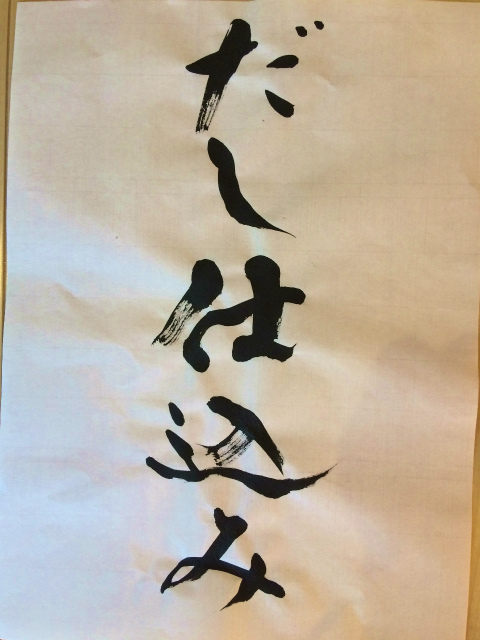 だし仕込み